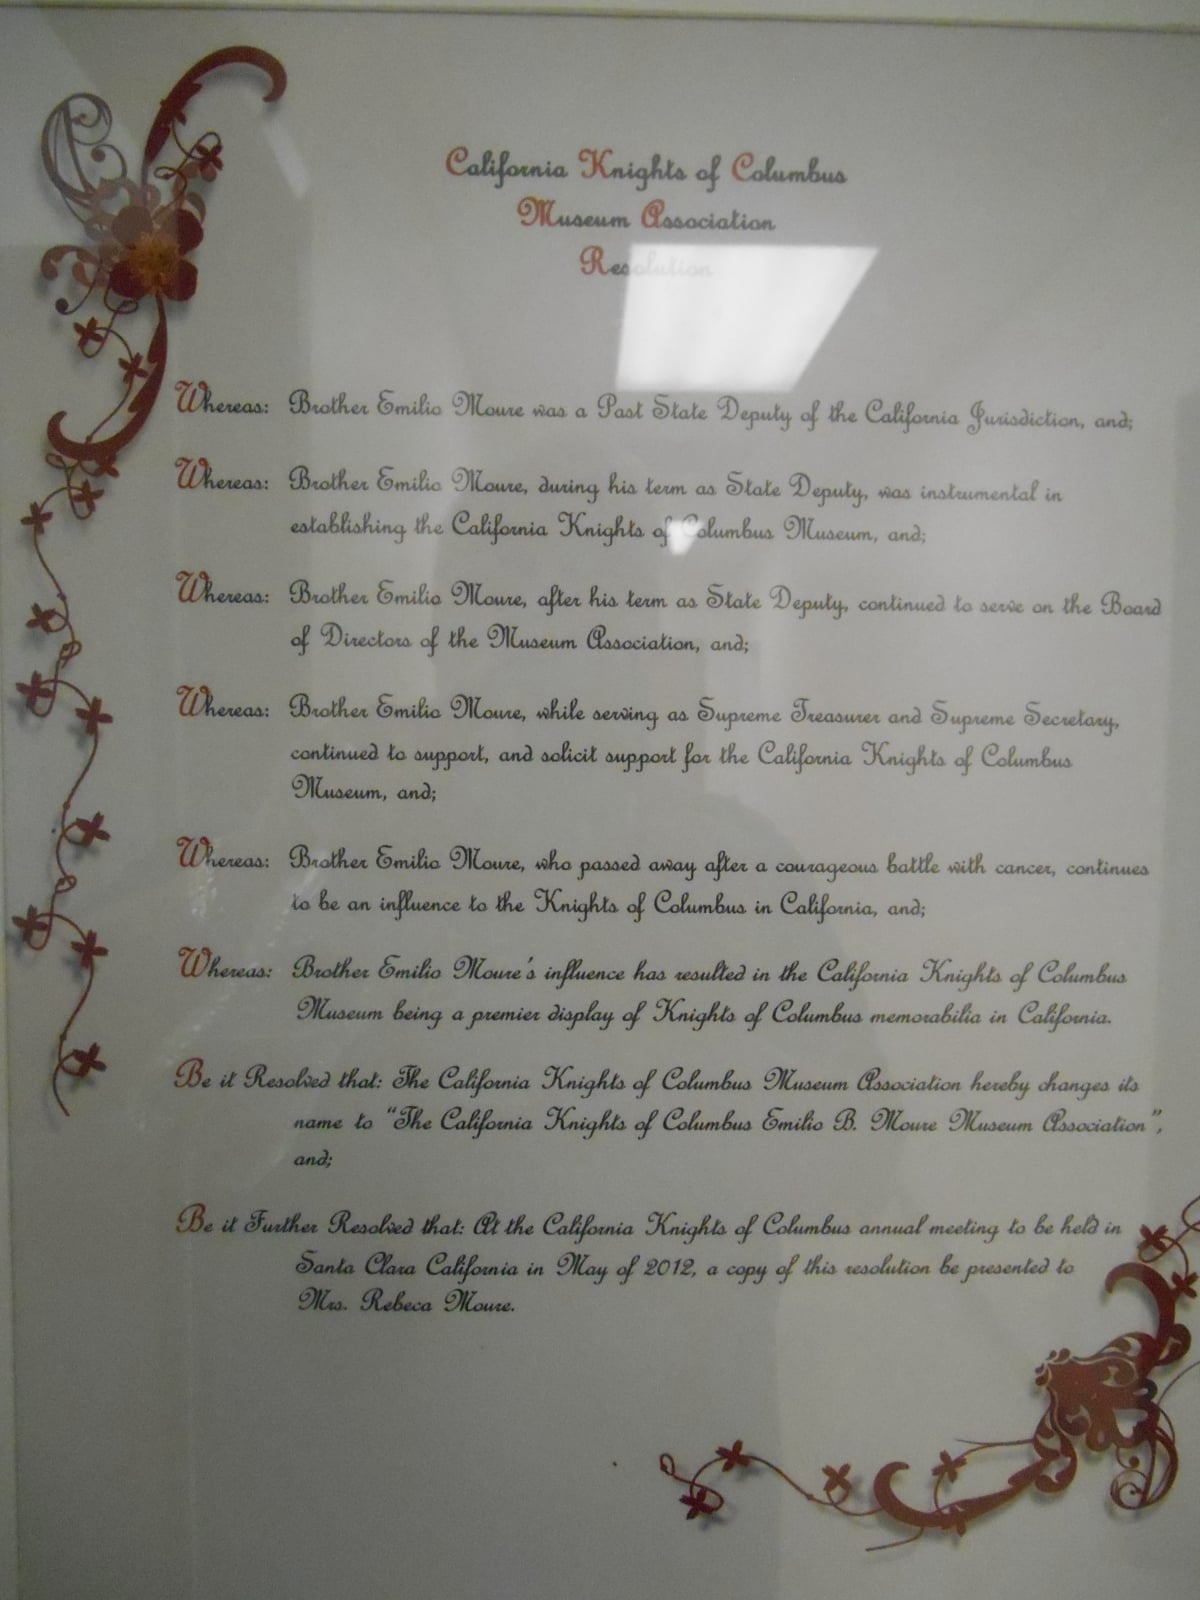 California Knights of Columbus
Museum Association
Resolution
Whereas: Brother Emilio Moure was a Past State Deputy of the California Jurisdiction, and;
Whereas: Brother Emilio Moure, during his term as State Deputy, was instrumental in
establishing the California Knights of Columbus Museum, and;
Whereas: Brother Emilio Moure, after his term as State Deputy, continued to serve on the Board
of Directors of the Museum Association, and;
Whereas: Brother Emilio Moure, while serving as Supreme Treasurer and Supreme Secretary,
continued to support, and solicit support for the California Knights of Columbus
Museum, and;
Whereas: Brother Emilio Moure, who passed away after a courageous battle with cancer, continues
to be an influence to the Knights of Columbus in California, and;
Whereas: Brother Emilio Moure's influence has resulted in the California Knights of Columbus
Museum being a premier display of Knights of Columbus memorabilia in California.
Be it Resolved that: The California Knights of Columbus Museum Association hereby changes its
name to “The California Knights of Columbus Emilio B. Moure Museum Association”,
and;
Be it Further Resolved that: At the California Knights of Columbus annual meeting to be held in
Santa Clara California in May of 2012, a copy of this resolution be presented to
Mrs. Rebeca Moure.